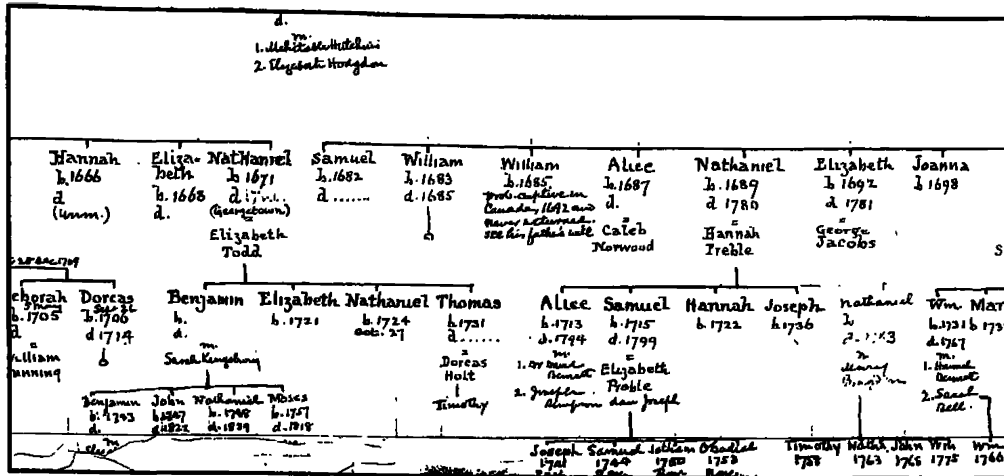 d.
m.
1. Mehitable Hutchins
2. Elizabeth Hodgdon
Hannah
b. 1666
d
(Unm.)
Eliza-
beth
b. 1668
d.
Nathaniel
b 1671
d
(Georgetown)
=
Elizabeth
Todd
Samuel
b. 1682
d ......
William
b. 1683
d. 1685
William
b. 1685
prob. captive in
Canada, 1692 and
never returned.
see his father's will
Alice
b. 1687
d.
=
Caleb
Norwood
Nathaniel
b. 1689
d 1780
=
Hannah
Preble
Elizabeth
b. 1692
d 1781
=
George
Jacobs
Joanna
b 1698
S
eborah
b. 1705
d
=
illiam
unning
Dorcas
b. 1706
d 1714
Benjamin
b.
d.
m
Sarah Kingsbury
Elizabeth
b. 1721
Nathaniel
b. 1724
Oct. 27
Thomas
b 1731
d ......
=
Dorcas
Holt
Timothy
Alice
b. 1713
d. 1794
m.
1.
2. Joseph
Simpson
Samuel
b. 1715
d. 1799
=
Elizabeth
Preble
dau Joseph
Hannah
b. 1722
Joseph
b 1736
Nathaniel
b
m
Mary
Wm
b. 1731
d. 1757
m.
1.
2. Sarah
Bell.
Mar
b 173
Benjamin
b. 1743
d.
John
b 1747
d. 1822
m
Nathaniel
b. 1748
d. 1829
Moses
b. 1757
d. 1818
Joseph
1741
Samuel
1744
Jotham
1750
Obadiah
1753
Timothy
1758
Nath'l
1763
John
1765
Wm
1775
Wm
1760